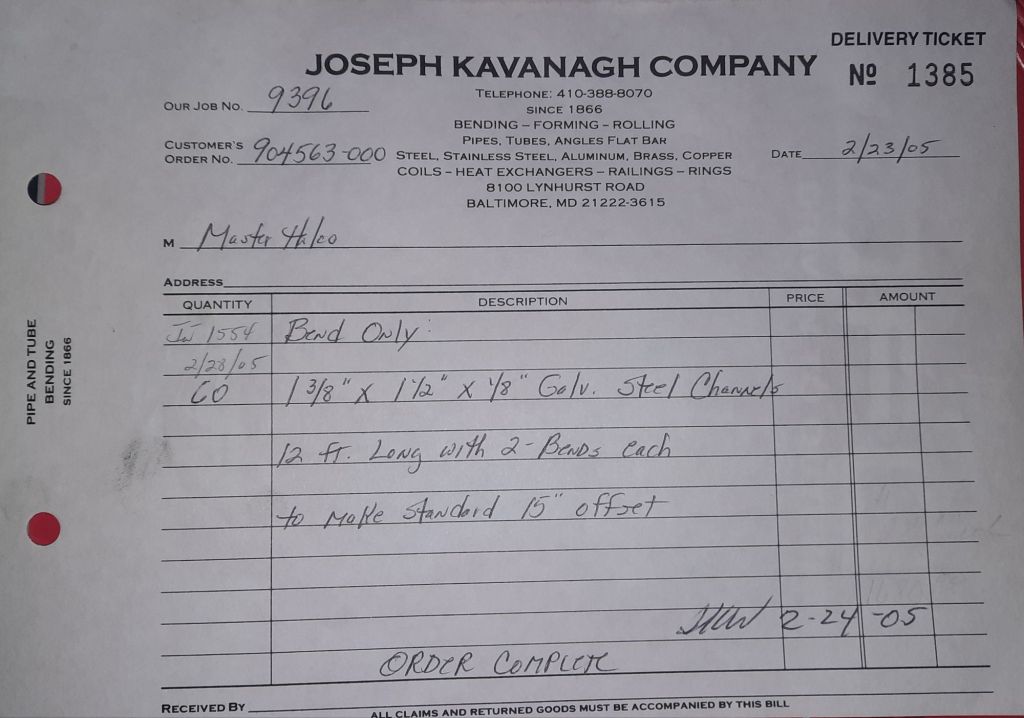 DELIVERY TICKET
JOSEPH KAVANAGH COMPANY
Nº 1385
TELEPHONE: 410-388-8070
OUR JOB NO. 9396
SINCE 1866
BENDING – FORMING – ROLLING
PIPES, TUBES, ANGLES FLAT BAR
CUSTOMER'S
ORDER NO. 904563-000
STEEL, STAINLESS STEEL, ALUMINUM, BRASS, COPPER
DATE 2/23/05
COILS – HEAT EXCHANGERS – RAILINGS – RINGS
8100 LYNHURST ROAD
BALTIMORE, MD 21222-3615
M Master Halco
ADDRESS
QUANTITY DESCRIPTION PRICE AMOUNT
1554 Bend Only:
2/28/05
60 1 3/8" X 1 1/2" X 1/8" Galv. Steel Channels
12 ft. Long with 2-Bends each
to Make Standard 15" offset
2-24-05
ORDER COMPLETE
RECEIVED BY
ALL CLAIMS AND RETURNED GOODS MUST BE ACCOMPANIED BY THIS BILL
PIPE AND TUBE
BENDING
SINCE 1866